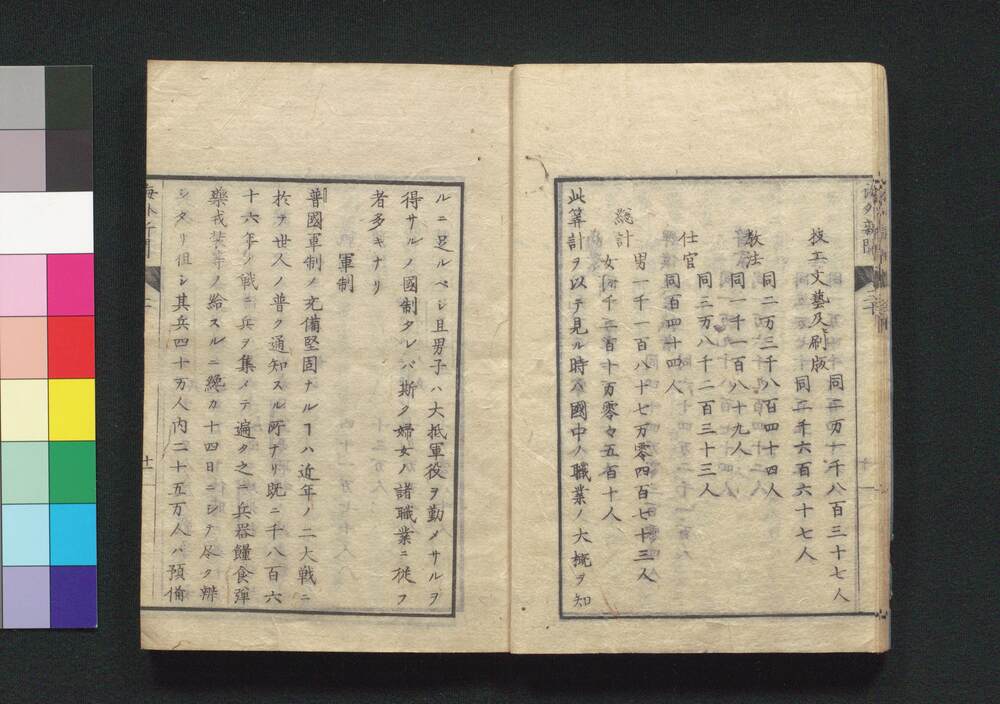 海外新聞
技工文藝及刷版
同二万一千八百三十七人
同二千六百六十七人
教法
同二万三千八百四十四人
同一千一百八十九人
仕官
同三万八千二百三十三人
同百四十四人
総計
男一千一百八十七万零四百七十三人
女同千二百十万零々五百十人
此筭計ヲ以テ見ル時ハ國中ノ職業ノ大概ヲ知
ルニ足ルベシ且男子ハ大抵軍役ヲ勤メサルヲ
得サルノ國制タレバ斯ク婦女ノ諸職業ニ従フ
者多キナリ
軍制
普國軍制ノ充備堅固ナルヿハ近年ノ二大戦ニ
於テ世人ノ普ク通知スル所ナリ既ニ千八百六
十六年ノ戦ニ兵ヲ集メテ遍ク之ニ兵器糧食弾
藥戎装等ノ給スルニ纔カ十四日ニシテ尽ク辨
シタリ但シ其兵四十万人内二十五万人ハ預備
海外新聞
十一